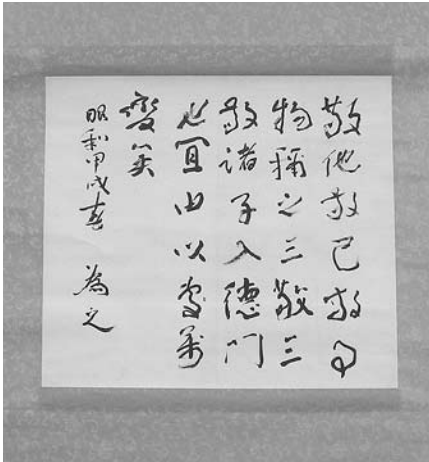 敬他敬己敬事
物稱之三敬三
敬諸子入德門
也宜由以處萬
變矣
昭和甲戌春 為之